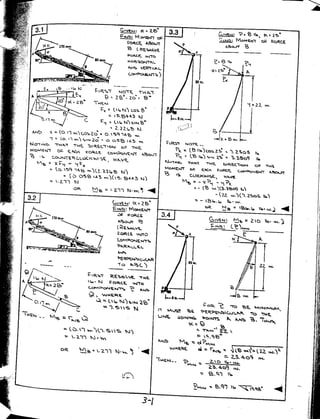 3.1
GIVEN: α = 28°
FIND: MOMENT OF
FORCE ABOUT
B (RESOLVE
FORCE INTO
HORIZONTAL
AND VERTICAL
COMPONENTS)
FIRST NOTE THAT
θ = 28° - 20° = 8°
THEN
Fx = (16 N) cos 8°
= 15.8443 N
Fy = (16 N) sin 8°
= 2.2268 N
AND x = (0.17 m) cos 20° = 0.159748 m
y = (0.17 m) sin 20° = 0.058145 m
NOTING THAT THE DIRECTION OF THE
MOMENT OF EACH FORCE COMPONENT ABOUT
B IS COUNTERCLOCKWISE, HAVE
MB = xFy + yFx
= (0.159748 m)(2.2268 N)
+ (0.058145 m)(15.8443 N)
= 1.277 N·m
OR MB = 1.277 N·m
3.2
GIVEN: α = 28°
FIND: MOMENT
OF FORCE
ABOUT B
(RESOLVE
FORCE INTO
COMPONENTS
PARALLEL
AND
PERPENDICULAR
TO ABC)
FIRST RESOLVE THE
16-N FORCE INTO
COMPONENTS P AND
Q, WHERE
Q = (16 N) sin 28°
= 7.5115 N
THEN.. MB = rA/B Q
= (0.17 m)(7.5115 N)
= 1.277 N·m
OR MB = 1.277 N·m
3.3
GIVEN: P = 8 lb, α = 28°
FIND: MOMENT OF FORCE
ABOUT B
P = 8 lb
α = 28°
y = 22 in.
x = 8 in.
FIRST NOTE..
Px = (8 lb) cos 28°
Py = (8 lb) sin 28°
NOTING THAT THE DIRECTION OF THE
MOMENT OF EACH FORCE COMPONENT ABOUT
B IS CLOCKWISE, HAVE
MB = -xPy - yPx
3.4
GIVEN: MB = 210 lb·in.
FIND: (P)min
FOR P TO BE MINIMUM,
IT MUST BE PERPENDICULAR TO THE
LINE JOINING POINTS A AND B. THUS,
α = θ
= 19.98°
AND MB = dPmin
WHERE d = rA/B = √(8 in.)² + (22 in.)²
= 23.409 in.
THEN.. Pmin = 210 lb·in. / 23.409 in.
= 8.97 lb
Pmin = 8.97 lb 19.98°
3-1